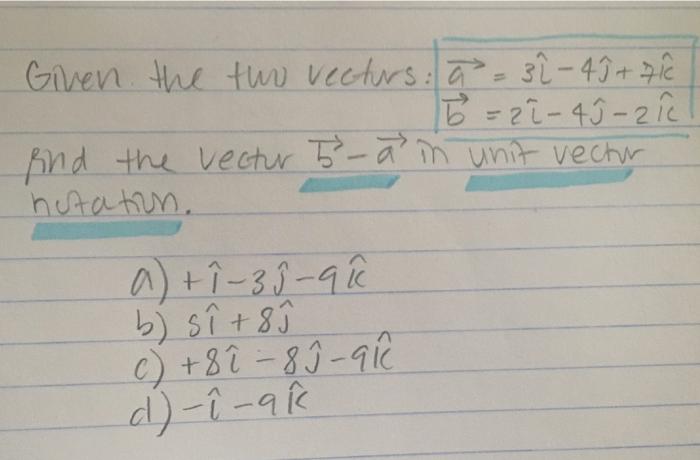 Given the two vectors: a⃗ = 3î - 4ĵ + 7k̂
b⃗ = 2î - 4ĵ - 2k̂
find the vector b⃗ - a⃗ in unit vector
notation.
a) +î - 3ĵ - 9k̂
b) 5î + 8ĵ
c) +8î - 8ĵ - 9k̂
d) -î - 9k̂